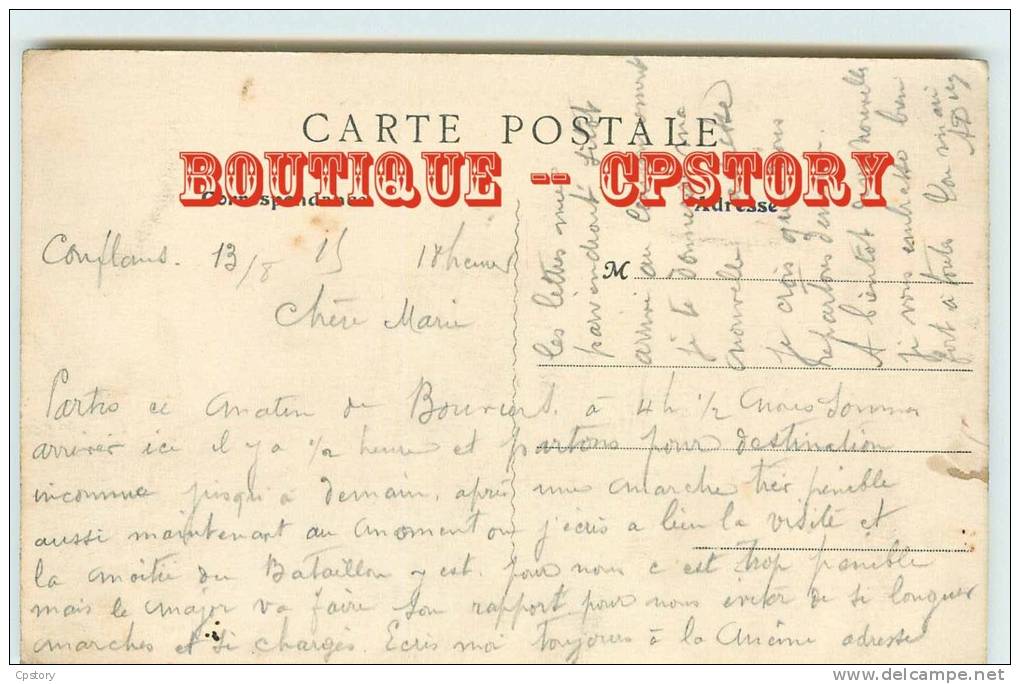 CARTE POSTALE
BOUTIQUE -- CPSTORY
Correspondance
Adresse
M
Conflans. 13/8 15 18 heures
Chère Marie
Partis ce matin de à 4h 1/2 nous sommes
arriver ici il y a 1/2 heure et partons pour destination
inconnue jusqu'à demain, après une marche très pénible
aussi maintenant au moment ou j'écris a lieu la visite et
la moitié du Bataillon y est. pour nous c'est trop penible
mais le major va faire son rapport pour nous éviter de si longues
marches et si chargés. Ecris moi toujours à la même adresse
les lettres me
parviendront sitôt
arrivé au
je te donnerai ma
nouvelle adresse
je crois que nous
repartons demain
A bientôt de nouvelles
je vous embrasse bien
fort à toutes Ton mari
Cpstory
www.delcampe.net